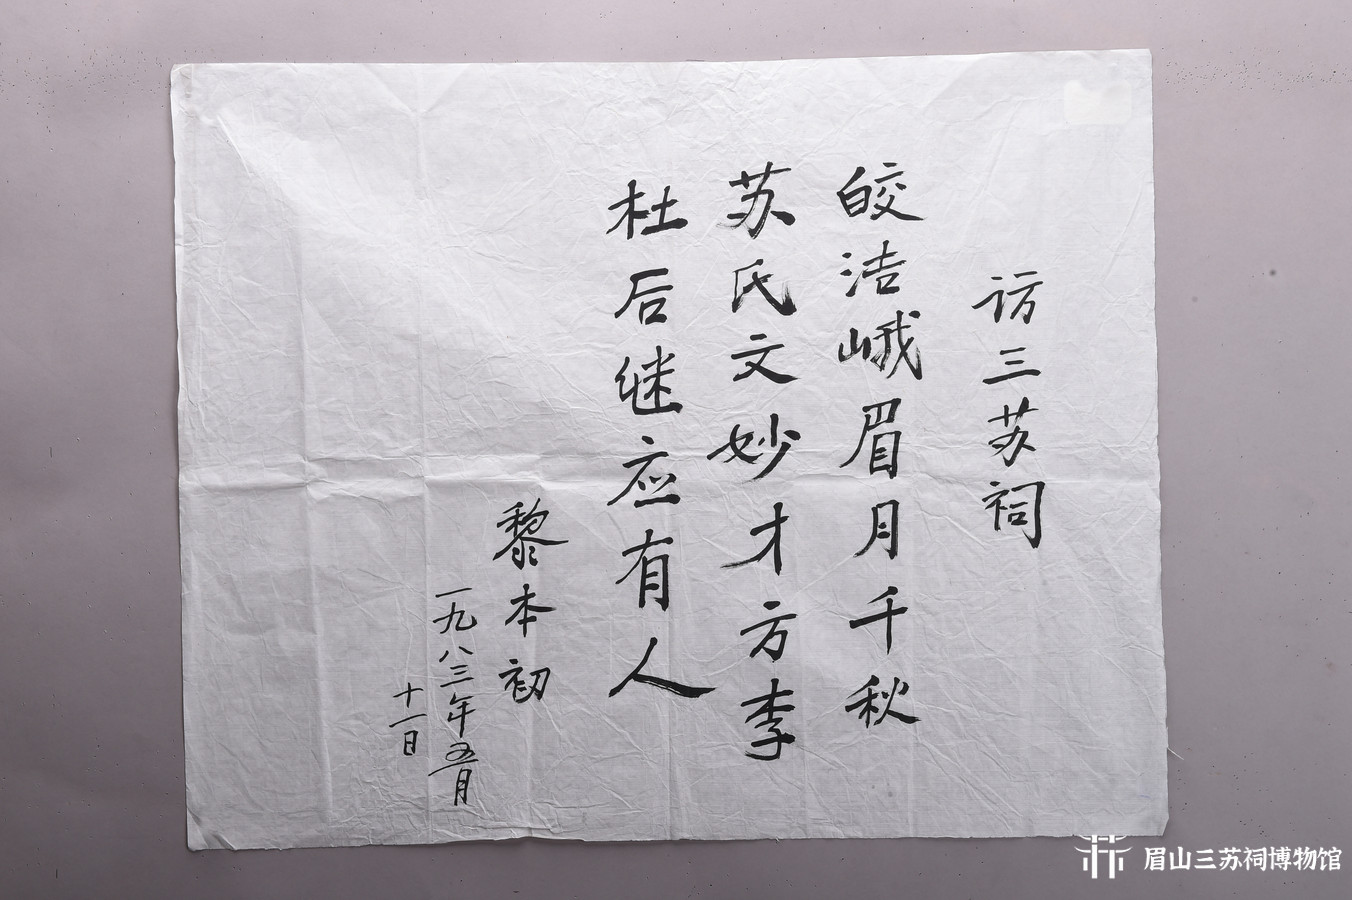 访三苏祠
皎洁峨眉月千秋
苏氏文妙才方李
杜后继应有人
黎本初
一九八三年五月
十一日
眉山三苏祠博物馆